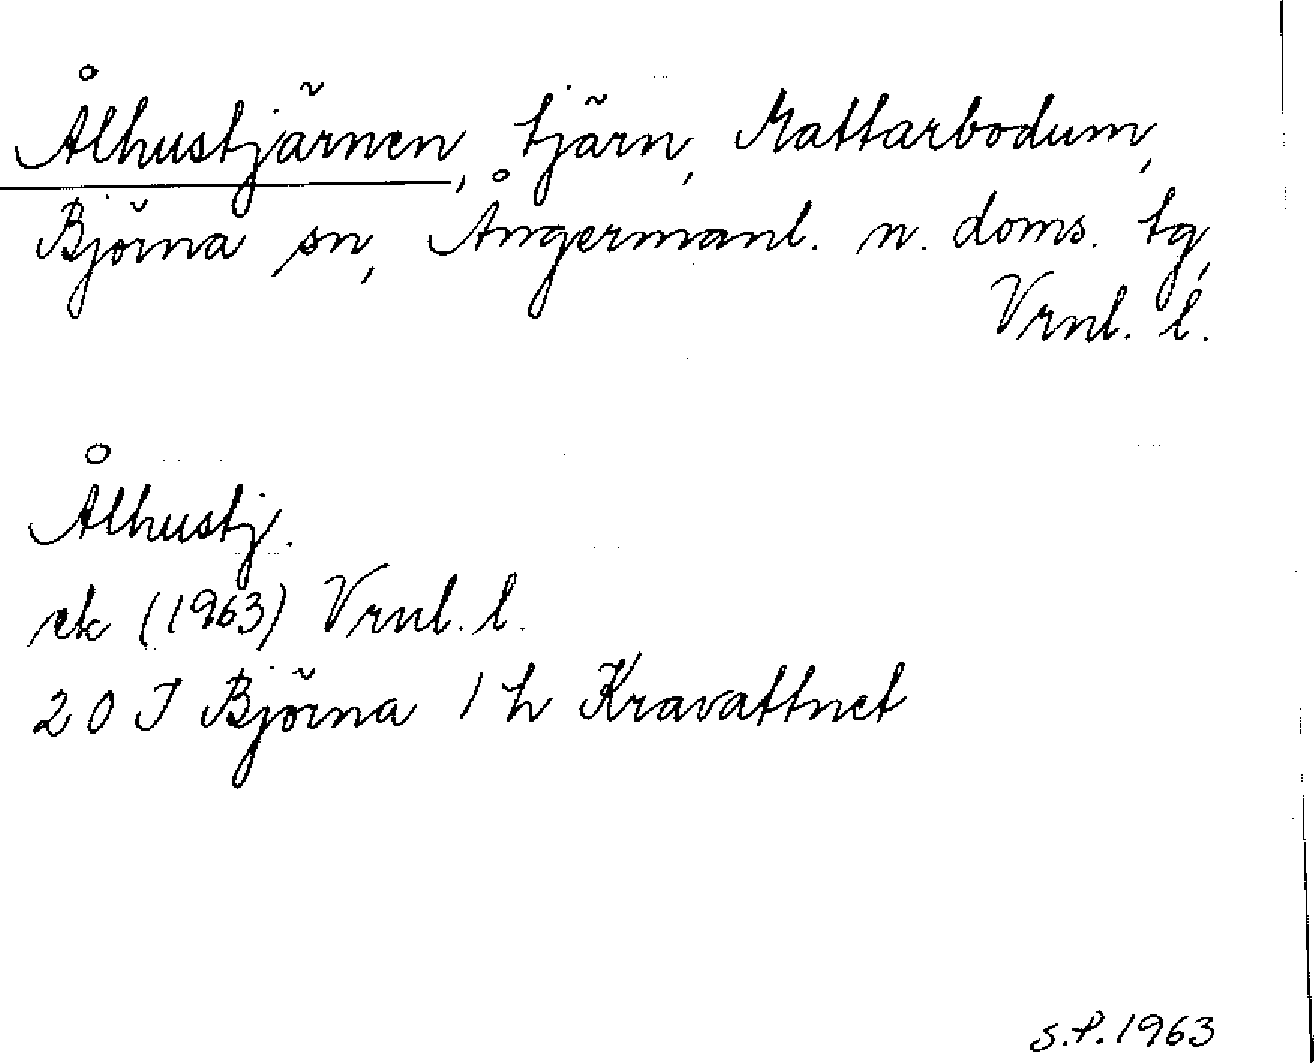 Ålhustjärnen, tjärn, Mattarbodum,
Björna sn, Ångermanl. n. doms. tg,
Vrnl. l.
Ålhustj.
ek (1963) Vrnl. l.
20 I Björna 1 h Kravattnet
S.P. 1963